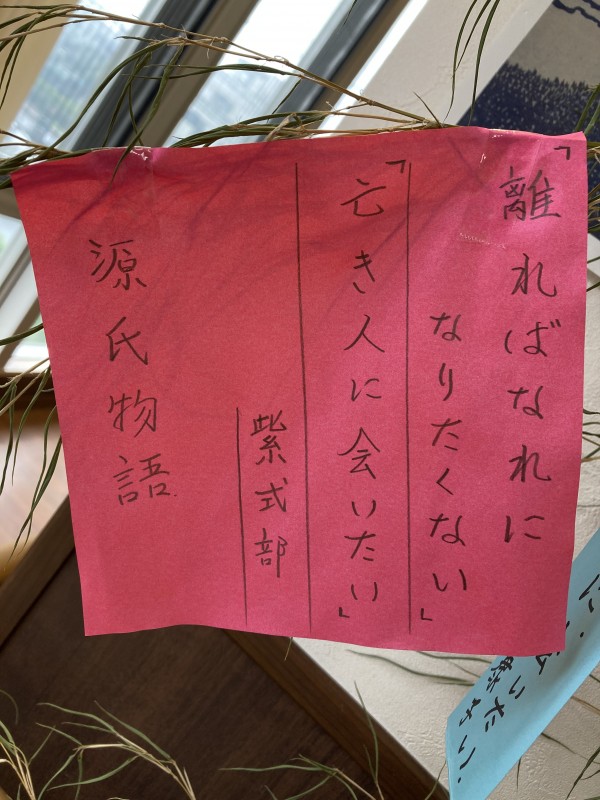 「離ればなれに
なりたくない」
「亡き人に会いたい」
紫式部
源氏物語